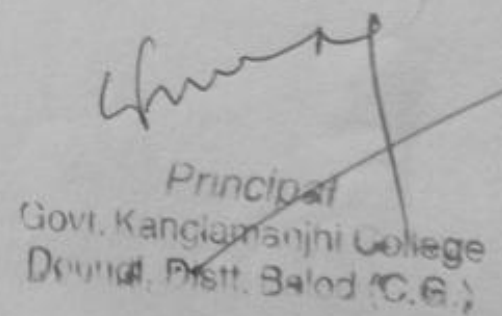 Principal
Govt. Kanglamanjhi College
Doundi, Distt. Balod (C.G.)